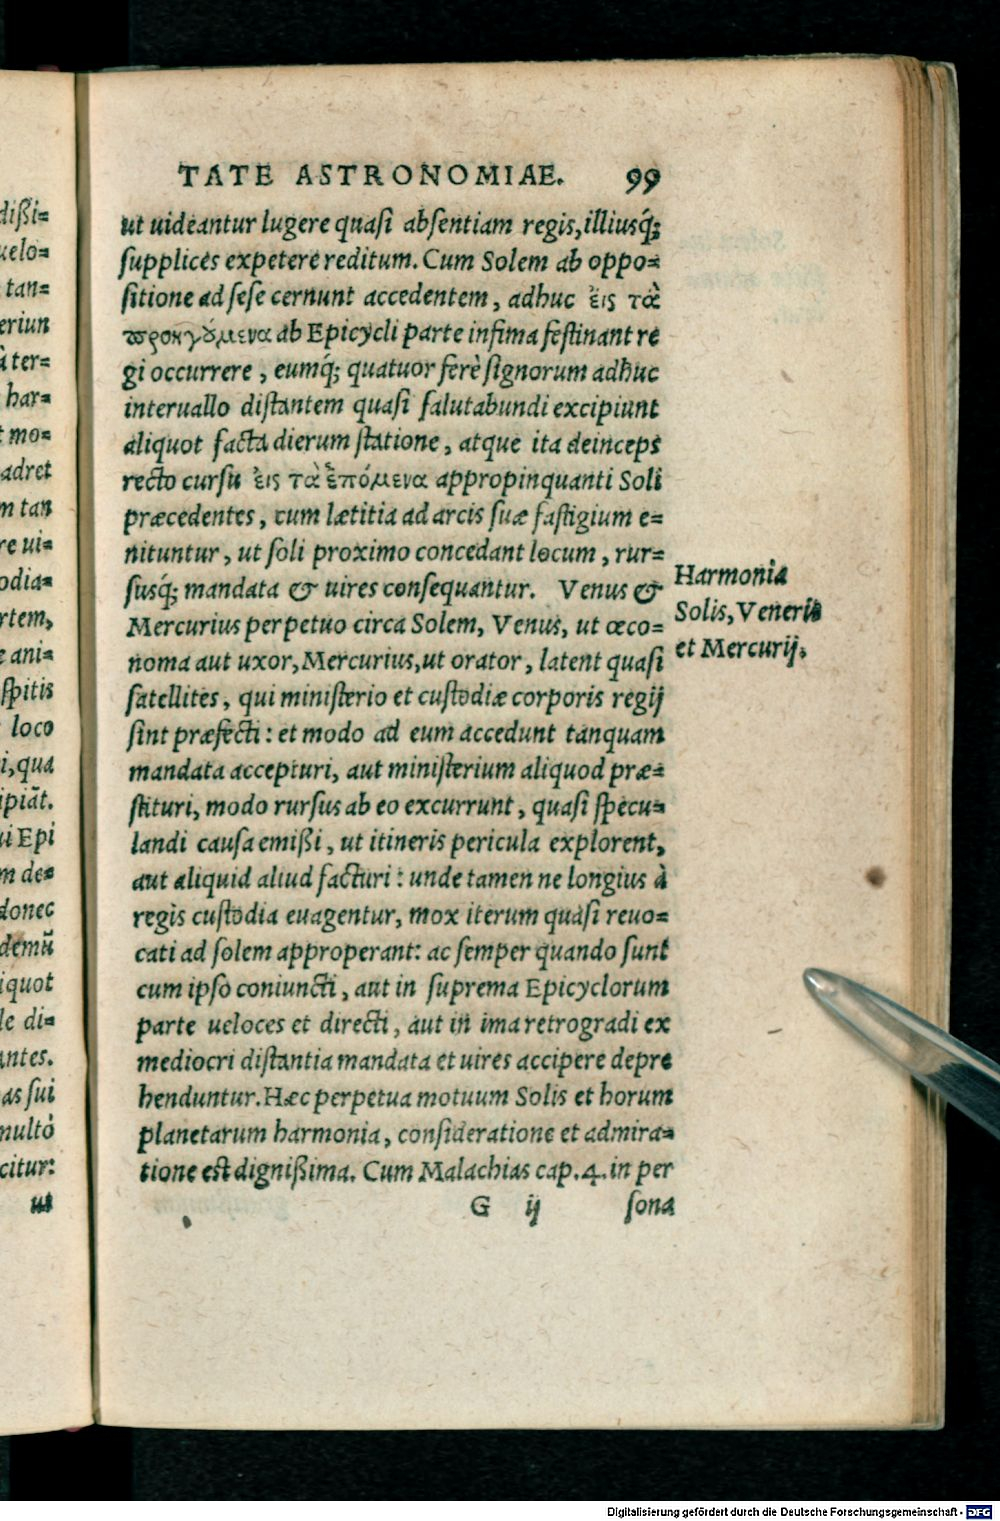 TATE ASTRONOMIAE. 99
ut uideantur lugere quasi absentiam regis, illiusq́;
supplices expetere reditum. Cum Solem ab oppo=
sitione ad sese cernunt accedentem, adhuc εἰς τὰ
προηγούμενα ab Epicycli parte infima festinant re
gi occurrere, eumq́; quatuor ferè signorum adhuc
interuallo distantem quasi salutabundi excipiunt
aliquot facta dierum statione, atque ita deinceps
recto cursu εἰς τὰ ἑπόμενα appropinquanti Soli
præcedentes, cum lætitia ad arcis suæ fastigium e=
nituntur, ut soli proximo concedant locum, rur=
susq́; mandata & uires consequantur. Venus &
Mercurius perpetuo circa Solem, Venus, ut œco=
noma aut uxor, Mercurius, ut orator, latent quasi
satellites, qui ministerio et custodiæ corporis regij
sint præfecti: et modo ad eum accedunt tanquam
mandata accepturi, aut ministerium aliquod præ=
stituri, modo rursus ab eo excurrunt, quasi specu=
landi causa emißi, ut itineris pericula explorent,
aut aliquid aliud facturi: unde tamen ne longius à
regis custodia euagentur, mox iterum quasi reuo=
cati ad solem approperant: ac semper quando sunt
cum ipso coniuncti, aut in suprema Epicyclorum
parte ueloces et directi, aut in ima retrogradi ex
mediocri distantia mandata et uires accipere depre
henduntur. Hæc perpetua motuum Solis et horum
planetarum harmonia, consideratione et admira=
tione est dignißima. Cum Malachias cap. 4. in per
G ij sona
Harmonia
Solis, Veneris
et Mercurij.
dißi=
uelo=
tan=
eriun
à ter=
har=
t mo=
adret
m tan
re ui=
odia=
rtem,
e ani=
spitis
loco
i, qua
ipiāt.
ui Epi
m de=
donec
demū
iquot
le di=
antes.
as sui
multò
citur:
ut
Digitalisierung gefördert durch die Deutsche Forschungsgemeinschaft - DFG